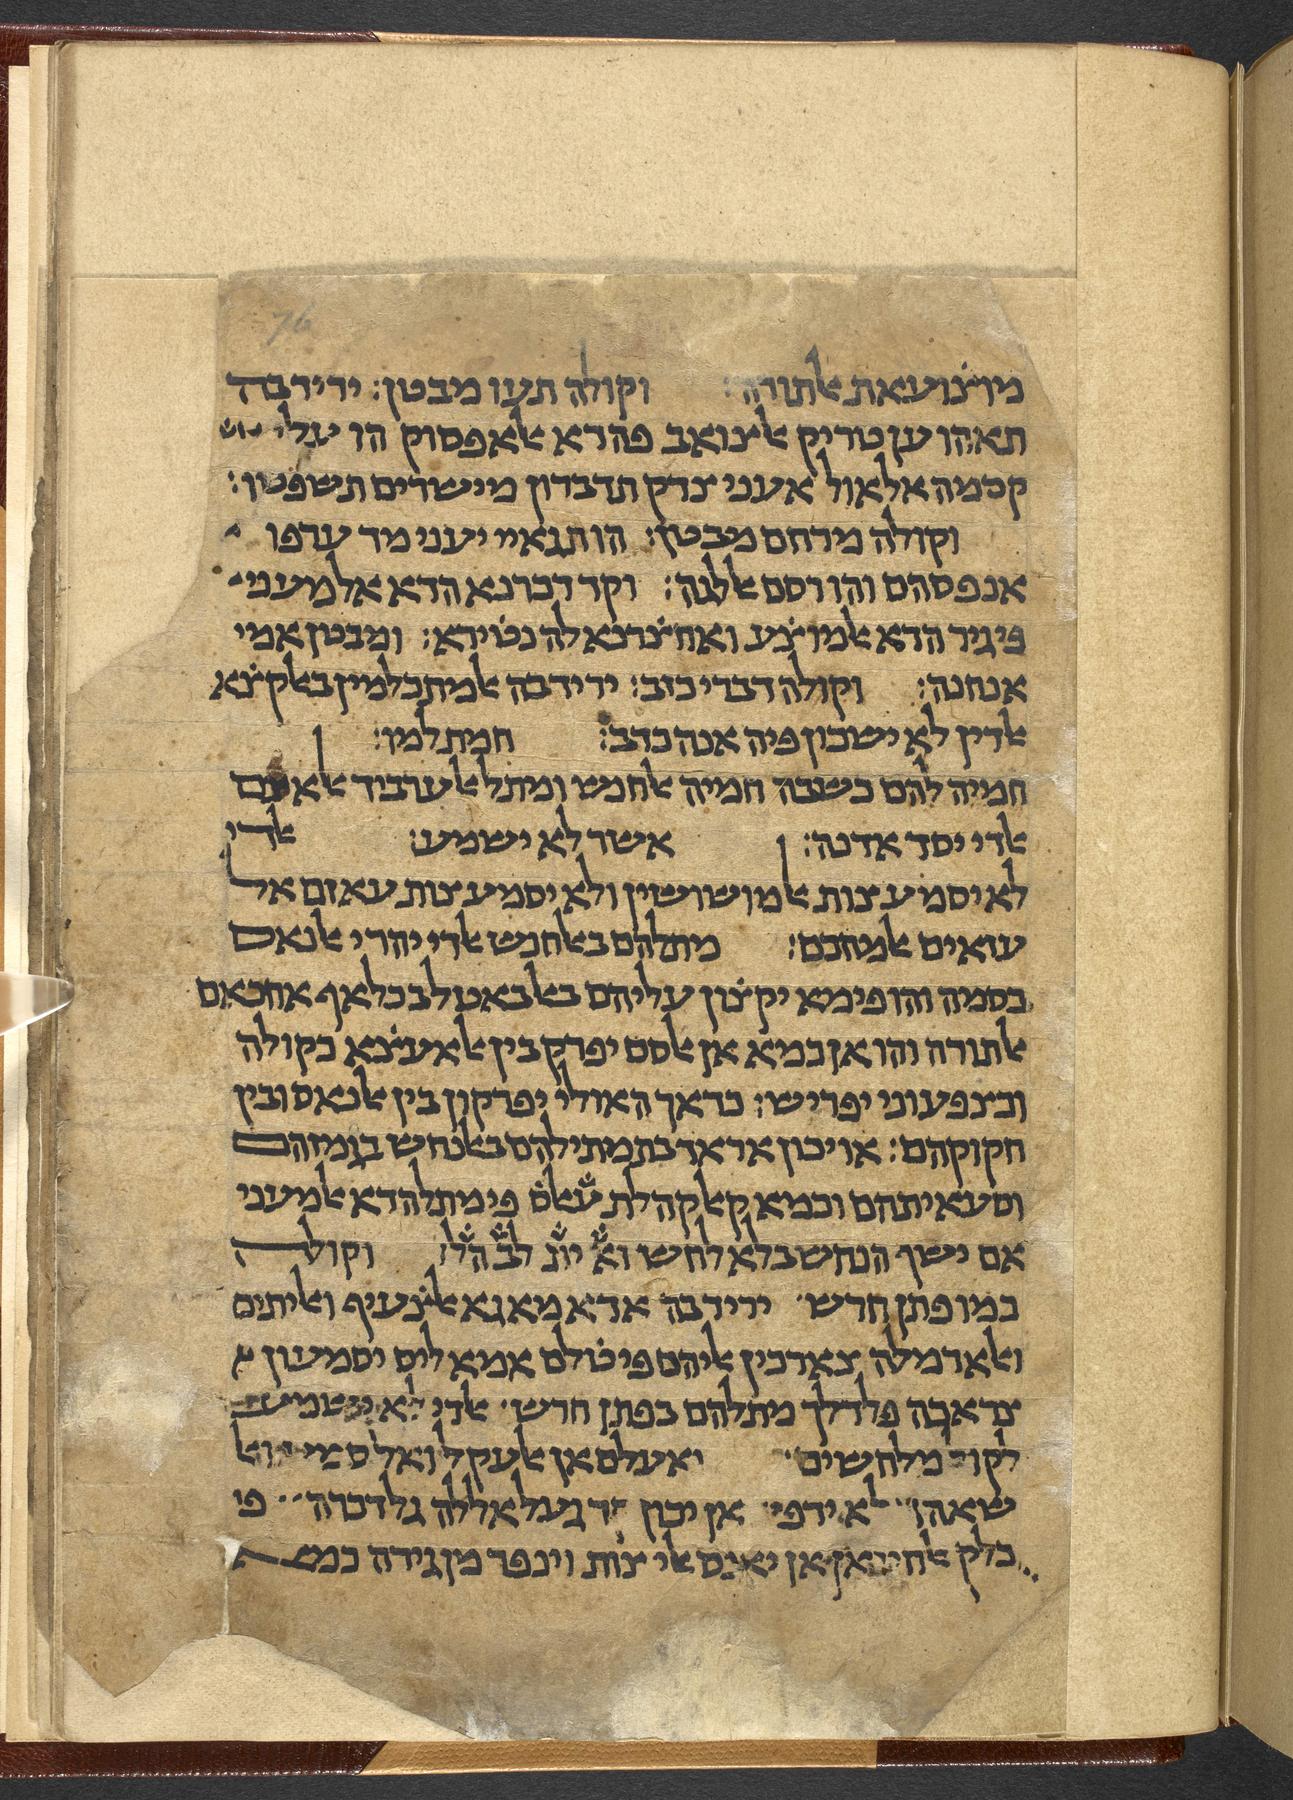 76
מוצ̇ועאת אלתורה: וקולה תעו מבטן: ירידבה
תאהו ען טריק אלצואב פהדא אלאפסוק הו עלי
קסמה אלאול אעני צדק תדברון מישרים תשפטו:
וקולה מרחם מבטן: הו תגאיי יעני מד ערפו
אנפסהם והו רסם אללגה: וקד דכרנא הדא אלמעני
פי גיר הדא אלמוצ̇ע ואחצ̇רנא לה נט̇ירא: ומבטן אמי
אנחנה: וקולה דברי כזב: ירידבה אלמתכלמין באלקצ̇א
אלדין לא ישכון פיה אנה כדב: חמת למו:
חמיה להם כשבה חמיה אלחנש ומתל אלערביד אלאצם
אלדי יסד אדנה: אשר לא ישמע: אלדי
לא יסמע צות אלמושושין ולא יסמע צות עאזם אל
עזאים אלמחכם: מתלהם באלחנש אלדי יהרי אלנאס
בסמה והו פימא יקצ̇ון עליהם באלבאטל בכלאף אחכאם
אלתורה והו אן כמא אן אלסם יפרק בין אלאעצ̇א כקולה
וכצפעוני יפריש: כדאך האולי יפרקון בין אלנאס ובין
חקוקהם: או יכון אראד בתמתילהם באלנחש בגמזהם
וסעאיתהם וכמא קאל קהלת ע̇אל̇ס פי מתל הדא אלמעני
אם ישך הנחש בלא לחש וא̇ יו̇ת̇ לב̇ הל̇ וקולה
כמו פתן חרש: ירידבה אדא מא גא אלצ̇עיף ואליתים
ואלארמלה צארכין אליהם פי ט̇לם אמא ליס יסמעון
צראכה פלדלך מתלהם בפתן חרש: אלדי לא ישמע
לקול מלחשים: יאעלם אן אלעקל ואלסמע
לא אן יכון אללה גל דכרה פי
אן יאנס אלי צות וינפר מן גירה כמא